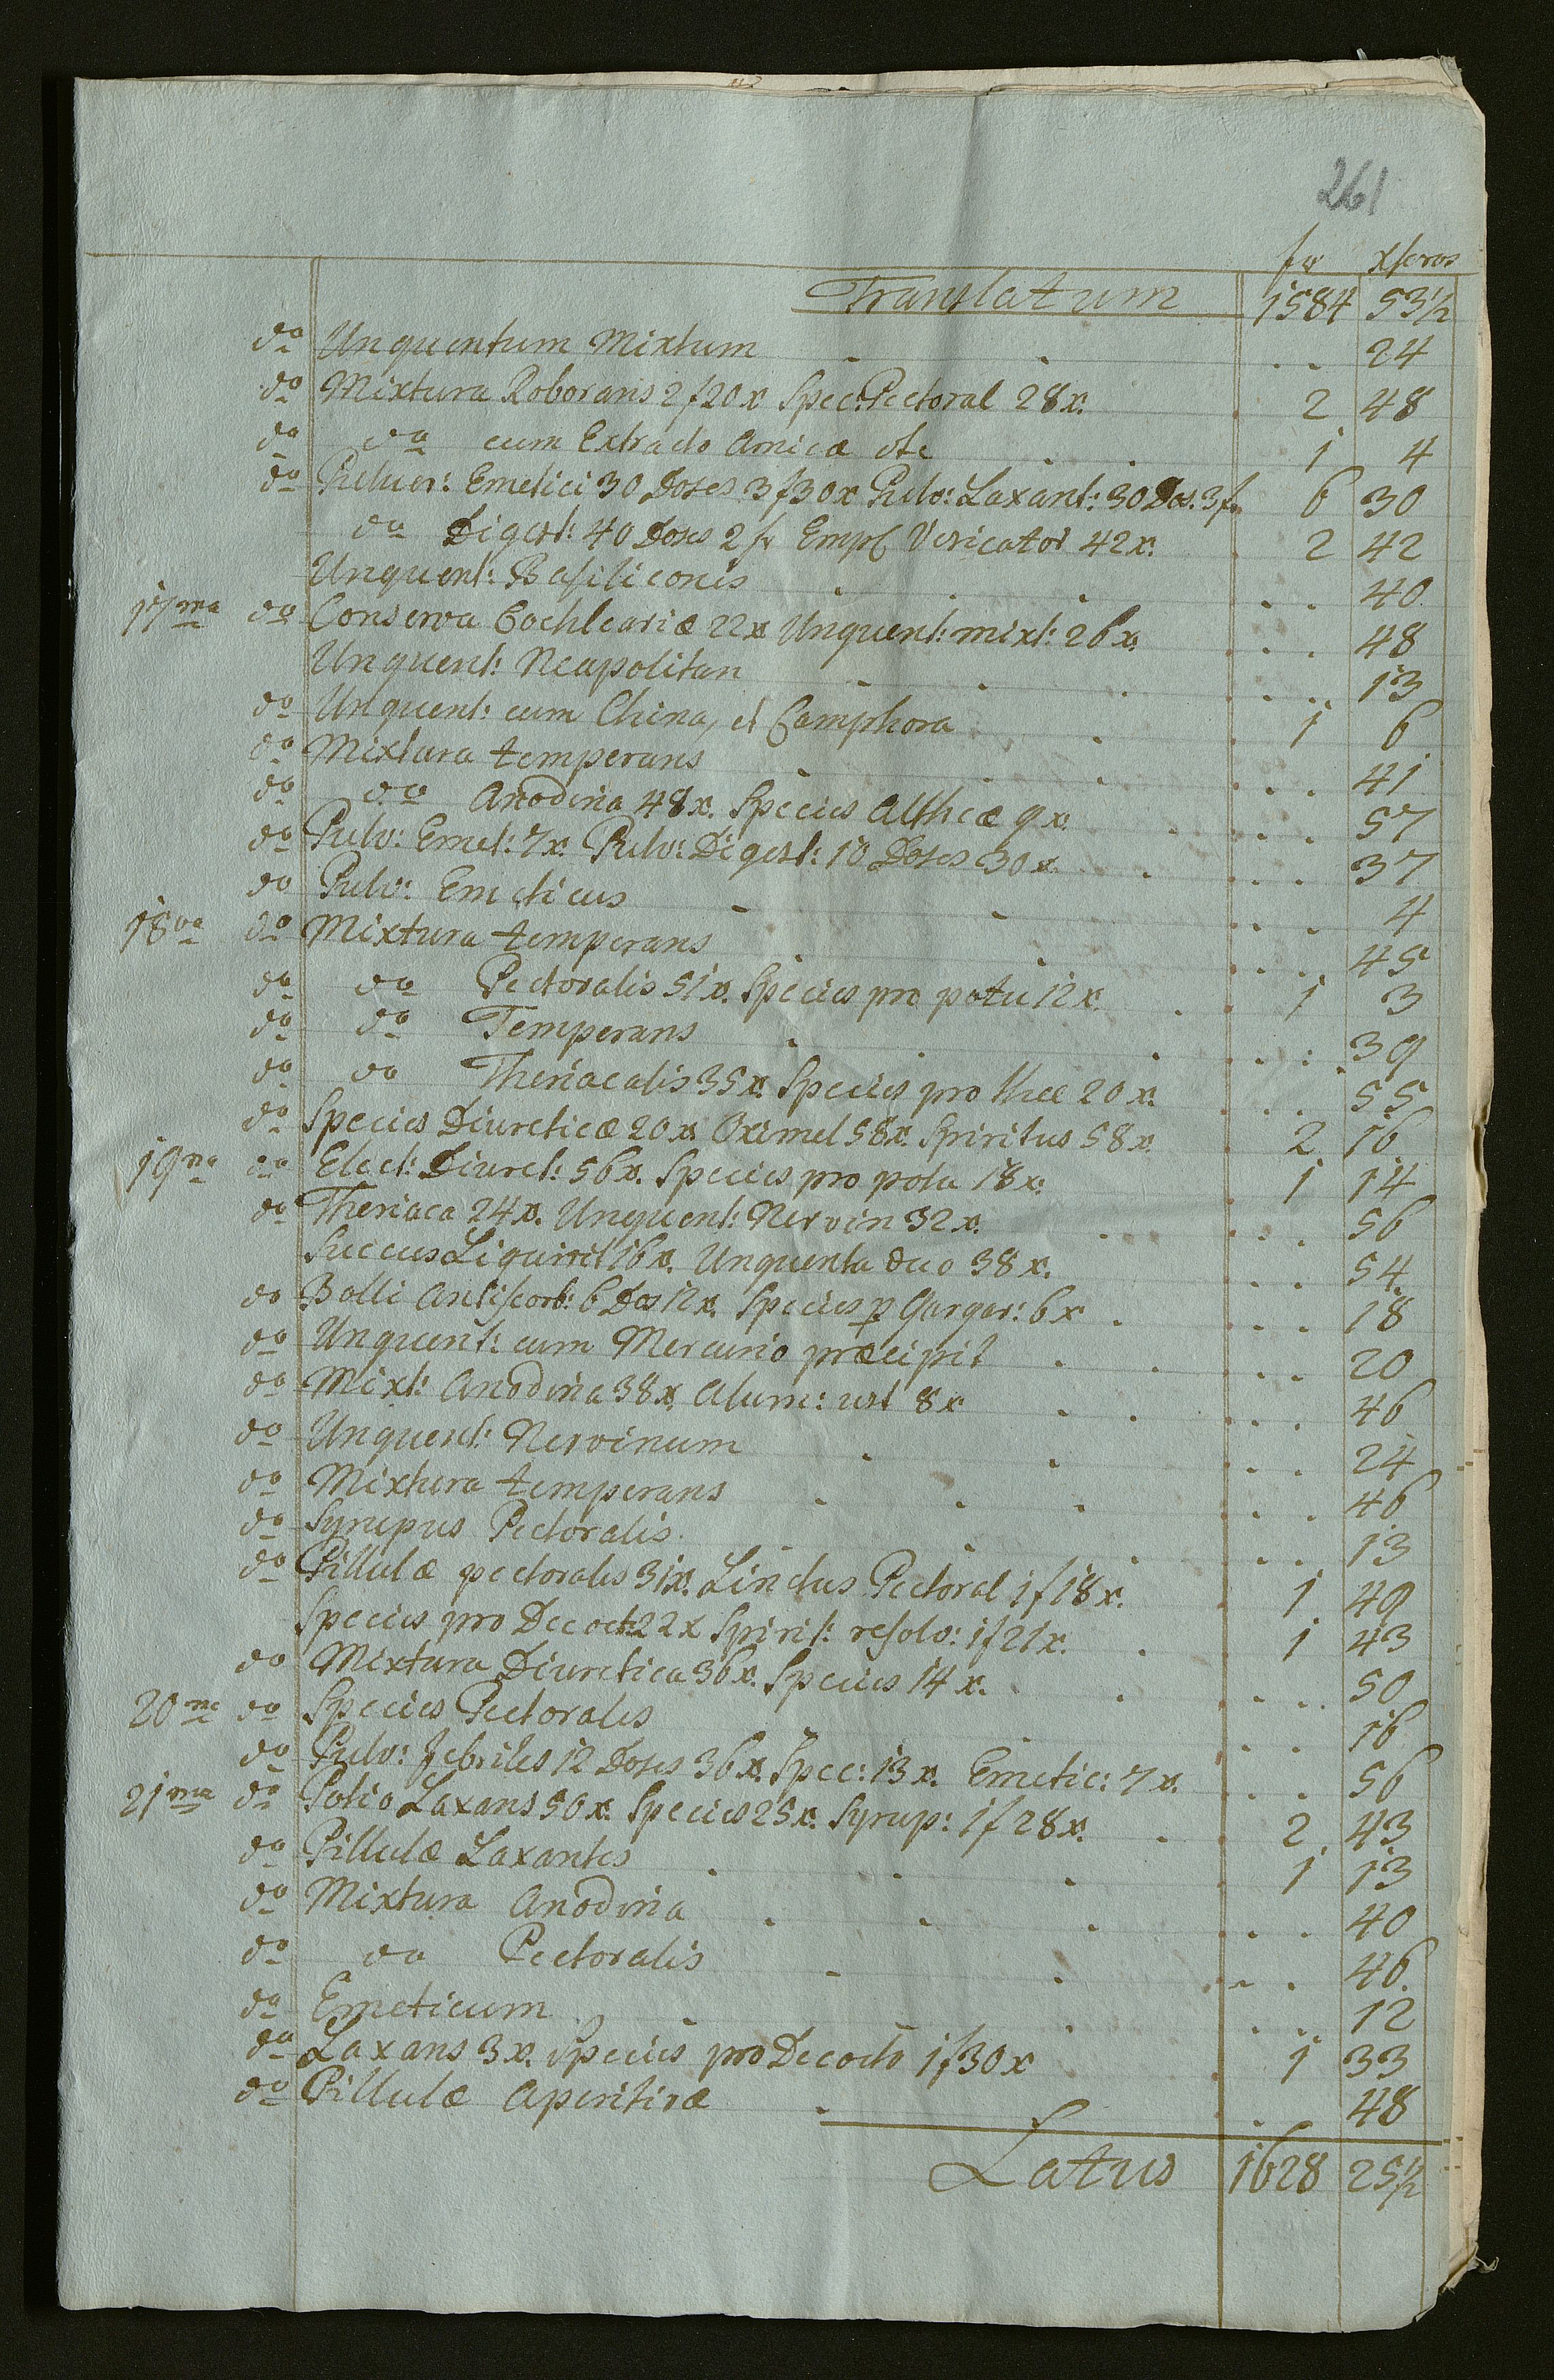 261
fr xferos
Translatum 1584 53 1/2
do Unguentum Mixtum . . . . 24
do Mixtura Roborans 2 f 20 x Spec: Pectoral 28 x. . 2 48
do do cum Extracto Arnicæ etc . . 1 4
do Pulver: Emetici 30 Doses 3 f 30 x Pulv: Laxant: 30 Dos: 3 fr 6 30
do Digest: 40 Doses 2 fr Empl Vesicator 42 x. . 2 42
Unguent: Basiliconis . . . . . 40
17ma do Conserva Cochleariæ 22 x Unguent: mixt: 26 x. . . . 48
Unguent: Neapolitan . . . . . . 13
do Unguent: cum China, et Camphora . . 1 6
do Mixtura temperans . . . . . . 41
do do Anodina 48 x. Species Altheæ 9 x. . . . . 57
do Pulv: Emet: 7 x. Pulv: Digest: 10 Doses 30 x. . . . . 37
do Pulv: Emeticus . . . . . 4
18va do Mixtura temperans . . . . . 45
do do Pectoralis 51 x. Species pro potu 12 x. . . 1 3
do do Temperans . . . . . . 39
do do Theriacalis 35 x. Species pro thee 20 x. . . . 55
do Species Diureticæ 20 x. Oximel 58 x. Spiritus 58 x. . 2 16
19na do Elect: Diuret: 56 x. Species pro potu 18 x. . 1 14
do Theriaca 24 x. Unguent: Nervin 32 x. . . . . . 56
Succus Liquirit 16 x. Unguenta duo 38 x. . . . 54
do Bolli Antiscorb: 6 Dos 12 x. Species p Gargar: 6 x . . . . 18
do Unguent: cum Mercurio præcipit . . . . . 20
do Mixt: Anodina 38 x. Alum: ust 8 x . . . . . 46
do Unguent: Nervinum . . . . . 24
do Mixtura temperans . . . . . . 46
do Syrupus Pectoralis . . . . . . 13
do Pillulæ pectorales 31 x. Linctus Pectoral 1 f 18 x. . 1 49
Species pro Decoct 22 x Spirit: resolv: 1 f 21 x. . . 1 43
do Mixtura Diuretica 36 x. Species 14 x. . . . . 50
20ma do Species Pectorales . . . . . 16
do Pulv: febriles 12 Doses 36 x. Spec: 13 x. Emetic: 7 x. . . . 56
21ma do Potio Laxans 50 x. Species 25 x. Syrup: 1 f 28 x. . . 2 43
do Pillulæ Laxantes . . . . 1 13
do Mixtura Anodina . . . . . . . 40
do do Pectoralis . . . . . 46
do Emeticum . . . . . . 12
do Laxans 3 x. Species pro Decocto 1 f 30 x . 1 33
do Pillulæ Aperitivæ . . . 48
Latus 1628 25 1/2